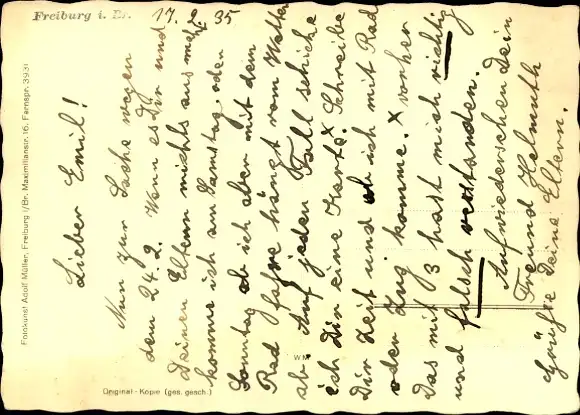 Freiburg i. Br. 17. 2. 35
Lieber Emil!
Nun zur Sache wegen
dem 24. 2. Wenn es Dir und
Deinen Eltern nichts aus macht
komme ich am Samstag oder
Sonntag ob ich aber mit dem
Rad fahre hängt vom Wetter
ab Auf jeden Fall schicke
ich Dir eine Karte. x Schreibe
Dir Zeit und ob ich mit Rad
oder Zug komme. x vorher
Das mit 3 hast mich richtig
und falsch verstanden.
Aufwiedersehen Dein
Freund Helmuth
Grüße Deine Eltern.
WM
Original-Kopie (ges. gesch.)
Fotokunst Adolf Müller, Freiburg i/Br. Maximilianstr. 16, Fernspr. 3931